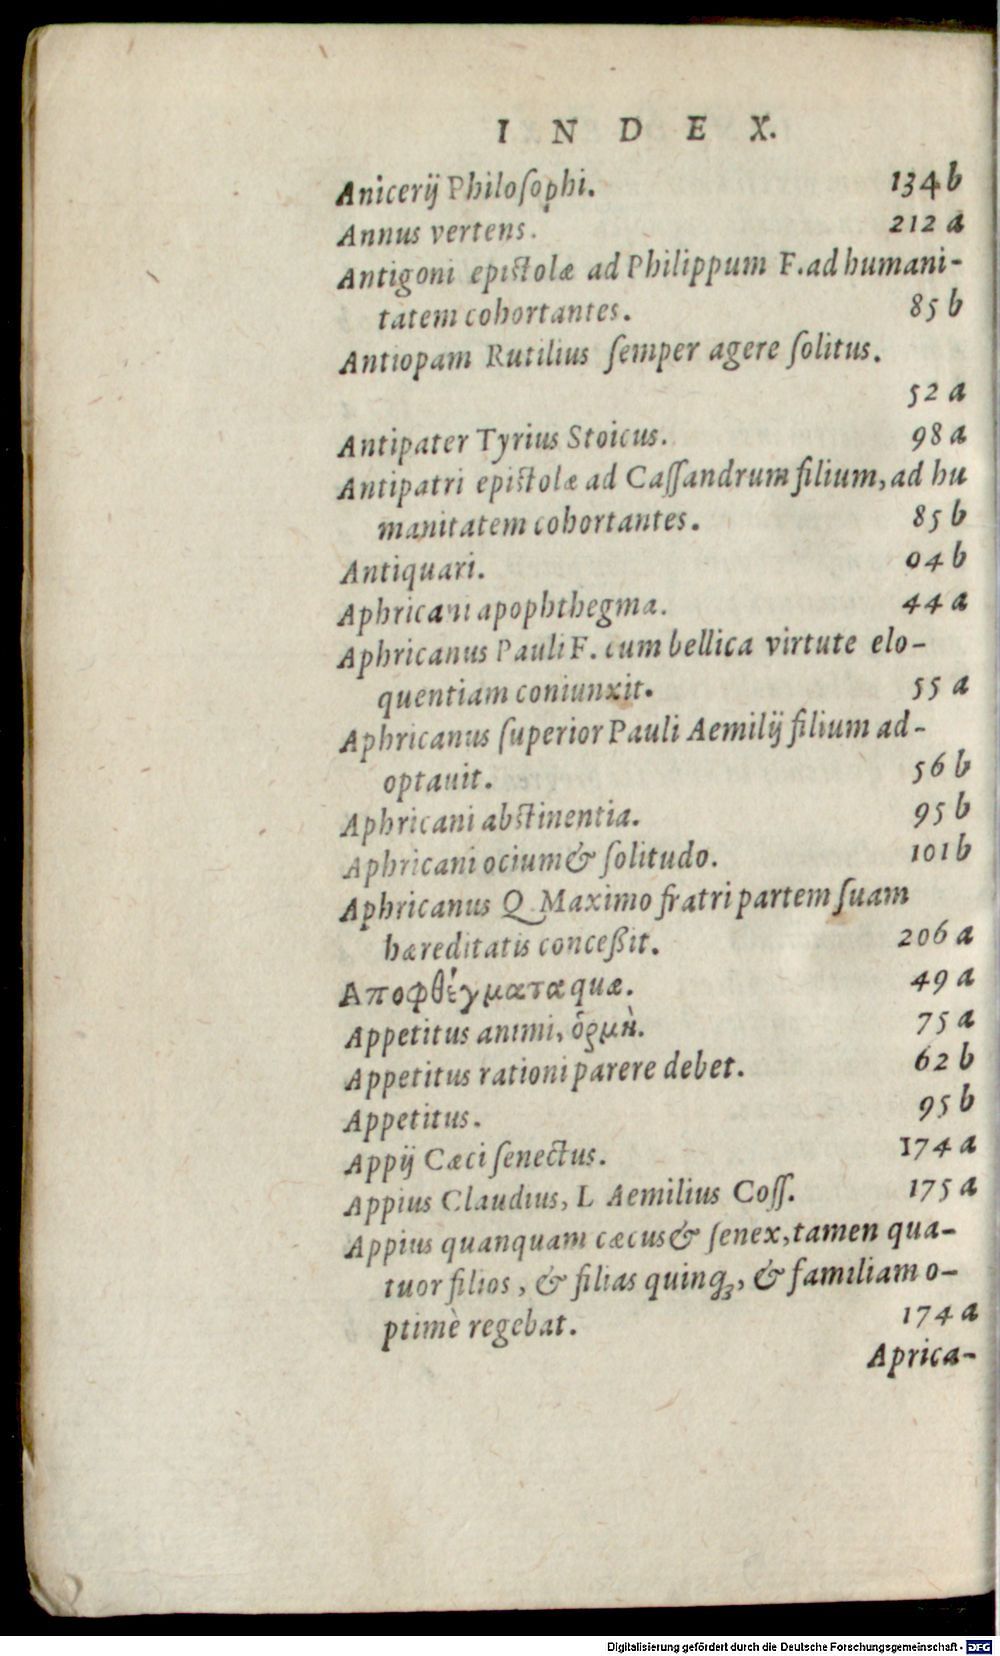 INDEX.
Anicerij Philoſophi. 134 b
Annus vertens. 212 a
Antigoni epistolæ ad Philippum F. ad humani-
tatem cohortantes. 85 b
Antiopam Rutilius ſemper agere ſolitus.
52 a
Antipater Tyrius Stoicus. 98 a
Antipatri epistolæ ad Caſſandrum filium, ad hu
manitatem cohortantes. 85 b
Antiquari. 94 b
Aphricani apophthegma. 44 a
Aphricanus Pauli F. cum bellica virtute elo-
quentiam coniunxit. 55 a
Aphricanus ſuperior Pauli Aemilij filium ad-
optauit. 56 b
Aphricani abstinentia. 95 b
Aphricani ocium & ſolitudo. 101 b
Aphricanus Q. Maximo fratri partem ſuam
hæreditatis conceßit. 206 a
Αποφθέγματα quæ. 49 a
Appetitus animi, ὁρμὴ. 75 a
Appetitus rationi parere debet. 62 b
Appetitus. 95 b
Appij Cæci ſenectus. 174 a
Appius Claudius, L Aemilius Coſſ. 175 a
Appius quanquam cæcus & ſenex, tamen qua-
tuor filios, & filias quinq;, & familiam o-
ptimè regebat. 174 a
Aprica-
Digitalisierung gefördert durch die Deutsche Forschungsgemeinschaft - DFG